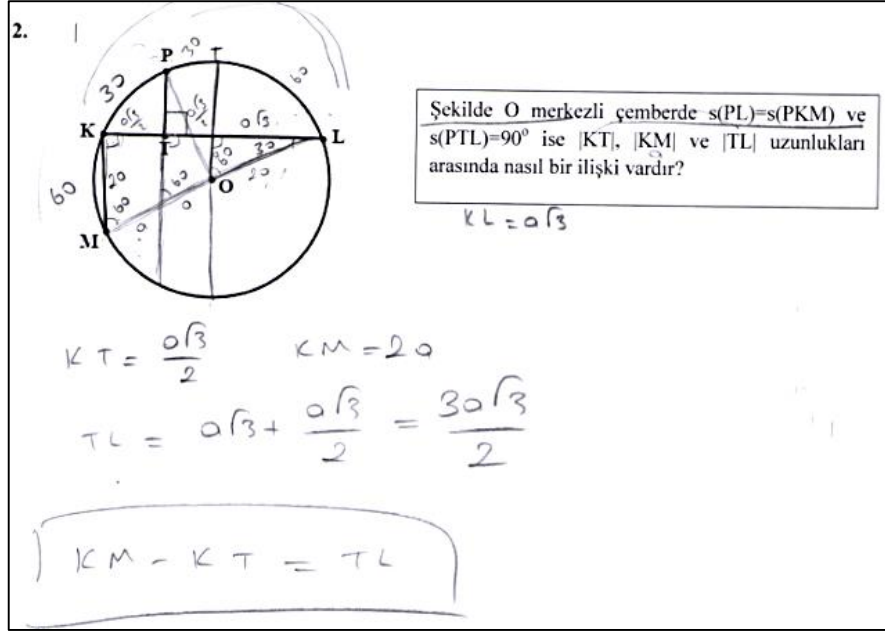 2.
P 30 T
30
60
K
a√3/2
a√3/2
a√3
L
T
60
20
30
30
60
O
20
60
a
a
M
Şekilde O merkezli çemberde s(PL)=s(PKM) ve
s(PTL)=90° ise |KT|, |KM| ve |TL| uzunlukları
arasında nasıl bir ilişki vardır?
KL = a√3
KT = a√3/2 KM = 2a
TL = a√3 + a√3/2 = 3a√3/2
KM - KT = TL